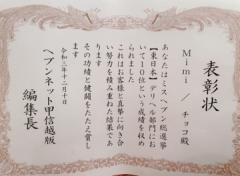 表彰状
Mimi / チョコ殿
あなたはミスヘブン総選挙
【東日本】デリヘル部門にお
いて10位という成績を収め
られました
これはお客様と真摯に向き合
い努力を積み重ねた結果であ
ります
その功績と健闘をたたえ賞し
ます
令和三年十二月十日
ヘブンネット甲信越版
編集長